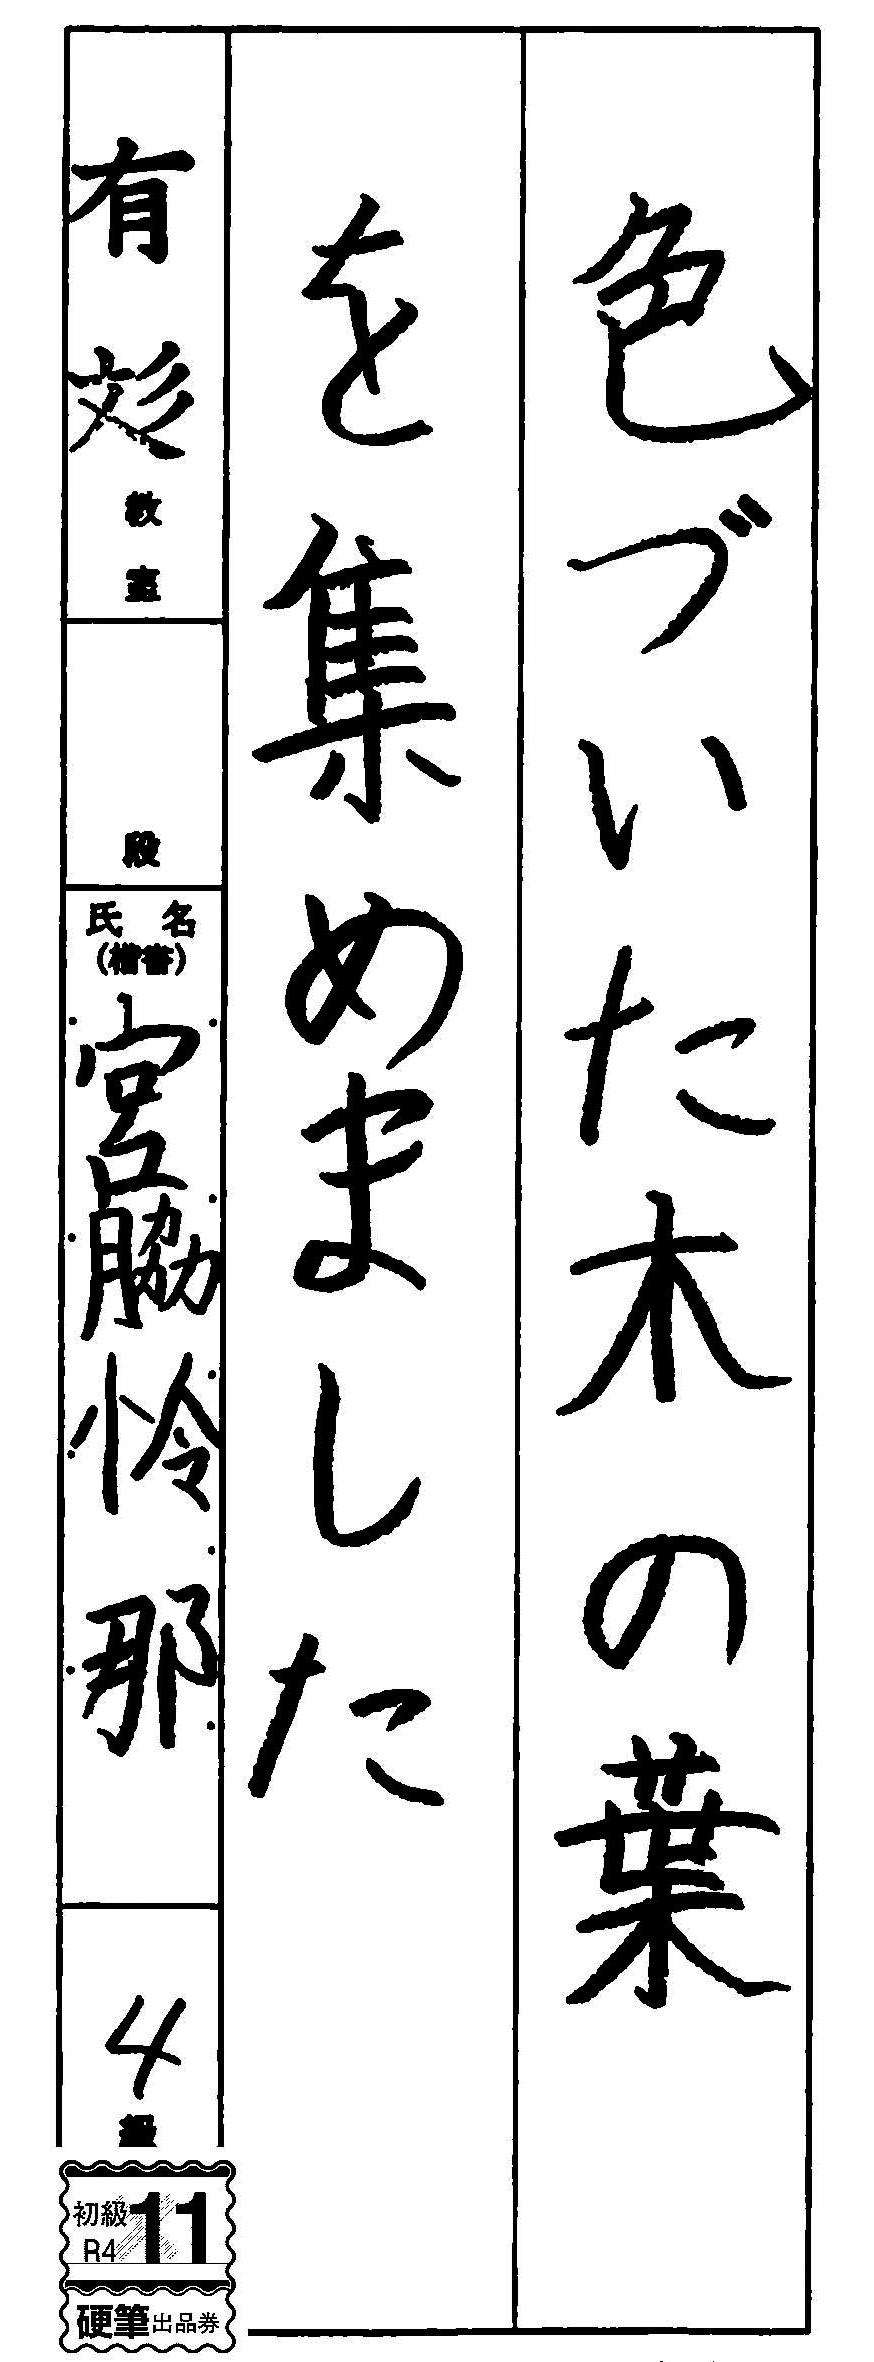 色づいた木の葉
を集めました
有
教室
段
氏名
(楷書)
宮脇怜那
4級
初級
R4
11
硬筆出品券